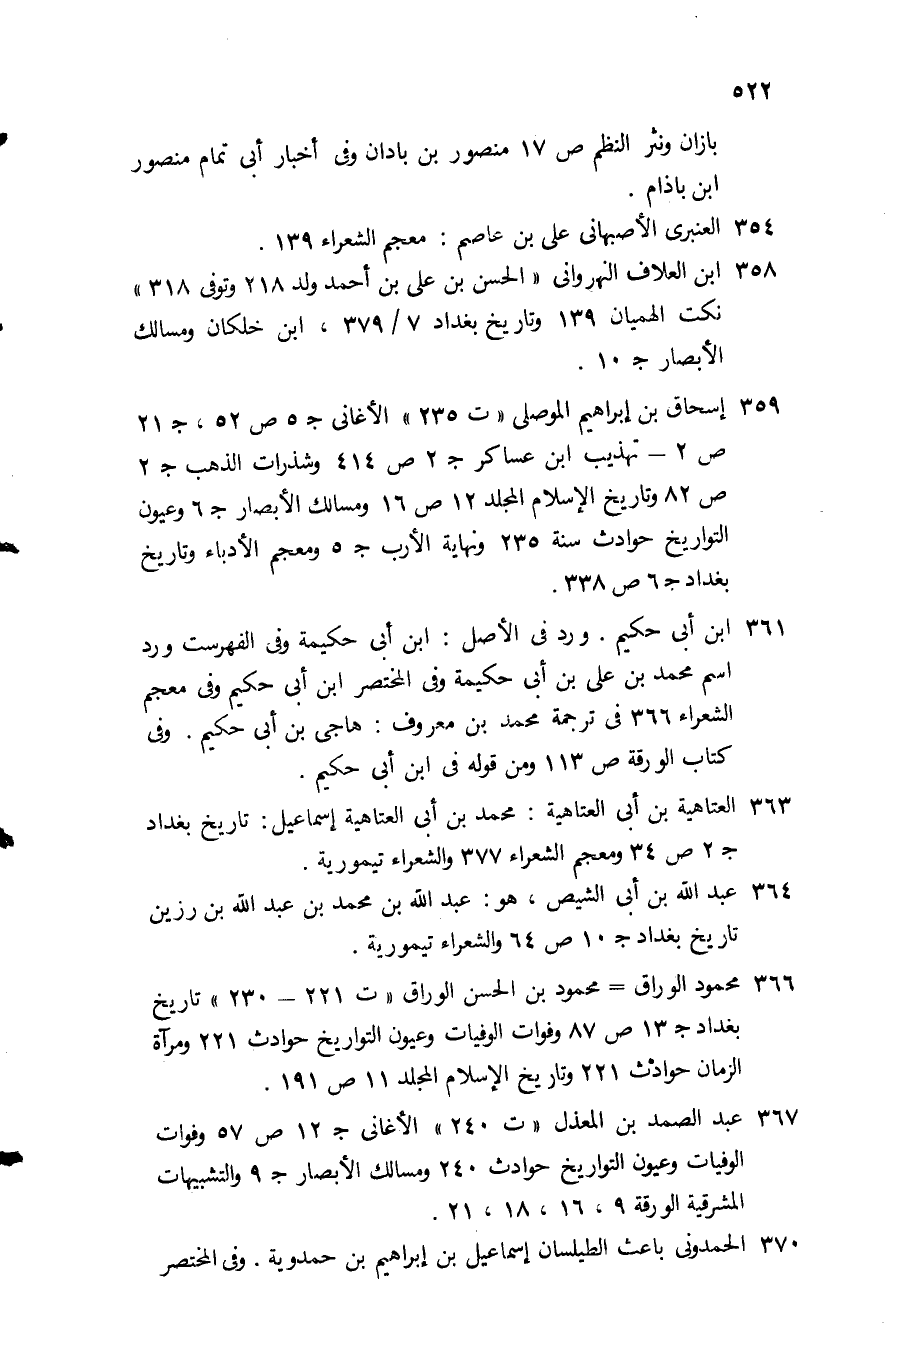 ٥٢٢
بازان ونثر النظم ص ١٧ منصور بن بادان وفى أخبار أبى تمام منصور
ابن باذام .
٣٥٤ العنبرى الأصبهانى على بن عاصم : معجم الشعراء ١٣٩ .
٣٥٨ ابن العلاف النهروانى « الحسن بن على بن أحمد ولد ٢١٨ وتوفى ٣١٨ »
نكت الهميان ١٣٩ وتاريخ بغداد ٧ / ٣٧٩ ، ابن خلكان ومسالك
الأبصار ج ١٠ .
٣٥٩ إسحاق بن إبراهيم الموصلى « ت ٢٣٥ » الأغانى ج ٥ ص ٥٢ ، ج ٢١
ص ٢ – تهذيب ابن عساكر ج ٢ ص ٤١٤ وشذرات الذهب ج ٢
ص ٨٢ وتاريخ الإسلام المجلد ١٢ ص ١٦ ومسالك الأبصار ج ٦ وعيون
التواريخ حوادث سنة ٢٣٥ ونهاية الأرب ج ٥ ومعجم الأدباء وتاريخ
بغداد ج ٦ ص ٣٣٨ .
٣٦١ ابن أبى حكيم . ورد فى الأصل : ابن أبى حكيمة وفى الفهرست ورد
اسم محمد بن على بن أبى حكيمة وفى المختصر ابن أبى حكيم وفى معجم
الشعراء ٣٦٦ فى ترجمة محمد بن معروف : هاجى بن أبى حكيم . وفى
كتاب الورقة ص ١١٣ ومن قوله فى ابن أبى حكيم .
٣٦٣ العتاهية بن أبى العتاهية : محمد بن أبى العتاهية إسماعيل : تاريخ بغداد
ج ٢ ص ٣٤ ومعجم الشعراء ٣٧٧ والشعراء تيمورية .
٣٦٤ عبد الله بن أبى الشيص ، هو : عبد الله بن محمد بن عبد الله بن رزين
تاريخ بغداد ج ١٠ ص ٦٤ والشعراء تيمورية .
٣٦٦ محمود الوراق = محمود بن الحسن الوراق « ت ٢٢١ – ٢٣٠ » تاريخ
بغداد ج ١٣ ص ٨٧ وفوات الوفيات وعيون التواريخ حوادث ٢٢١ ومرآة
الزمان حوادث ٢٢١ وتاريخ الإسلام المجلد ١١ ص ١٩١ .
٣٦٧ عبد الصمد بن المعذل « ت ٢٤٠ » الأغانى ج ١٢ ص ٥٧ وفوات
الوفيات وعيون التواريخ حوادث ٢٤٠ ومسالك الأبصار ج ٩ والتشبيهات
المشرقية الورقة ٩ ، ١٦ ، ١٨ ، ٢١ .
٣٧٠ الحمدونى باعث الطيلسان إسماعيل بن إبراهيم بن حمدوية . وفى المختصر